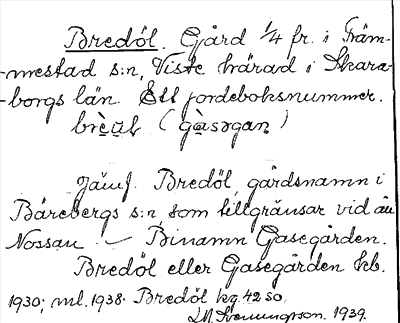 Bredöl. Gård 1/4 fr. i Främ-
-mestad s:n, Viste härad i Skara-
-borgs län. Ett jordeboksnummer.
(gàsəgan)
Jämf. Bredöl, gårdsnamn i
Bärebergs s:n, som tillgränsar vid ån
Nossan. – Binamn Gasegården.
Bredöl eller Gasegården kb.
1930; ml. 1938. Bredöl kg. 42 SO.
1939.